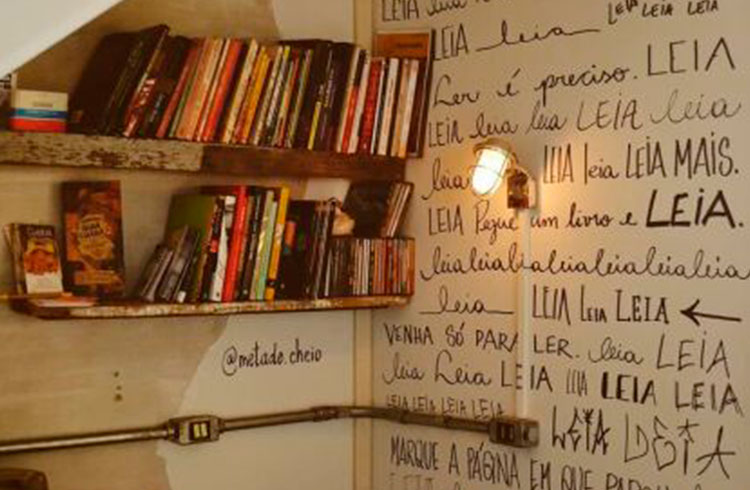 LEIA leia
LEIA LEIA LEIA
LEIA leia
Ler é preciso. LEIA
LEIA leia leia LEIA leia
leia LEIA leia LEIA MAIS.
LEIA Pegue um livro e LEIA.
leialeialeialeialeialeialeia
leia LEIA LEIA LEIA
VENHA SÓ PARA LER. leia LEIA
@metade.cheio
leia Leia LEIA LEIA LEIA LEIA
LEIA LEIA LEIA LEIA LEIA
MARQUE A PÁGINA EM QUE